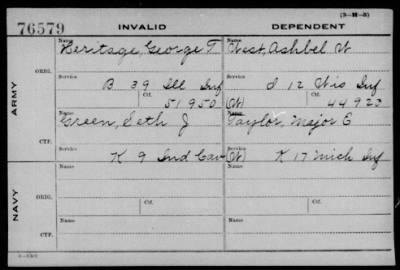 (3-M-3)
76579 INVALID DEPENDENT
Name Name
Heritage, George T. West, Ashbel W
ARMY
ORIG.
Service Service
B 39 Ill Inf I 12 Wis Inf
Ctf. 51950 (W) Ctf. 44923
Name Name
Green, Seth J Taylor, Major E
CTF.
Service Service
K 9 Ind Cav (W) K 17 Mich Inf
Name Name
NAVY
ORIG.
Service Ctf. Service Ctf.
Name Name
CTF.
Service Service